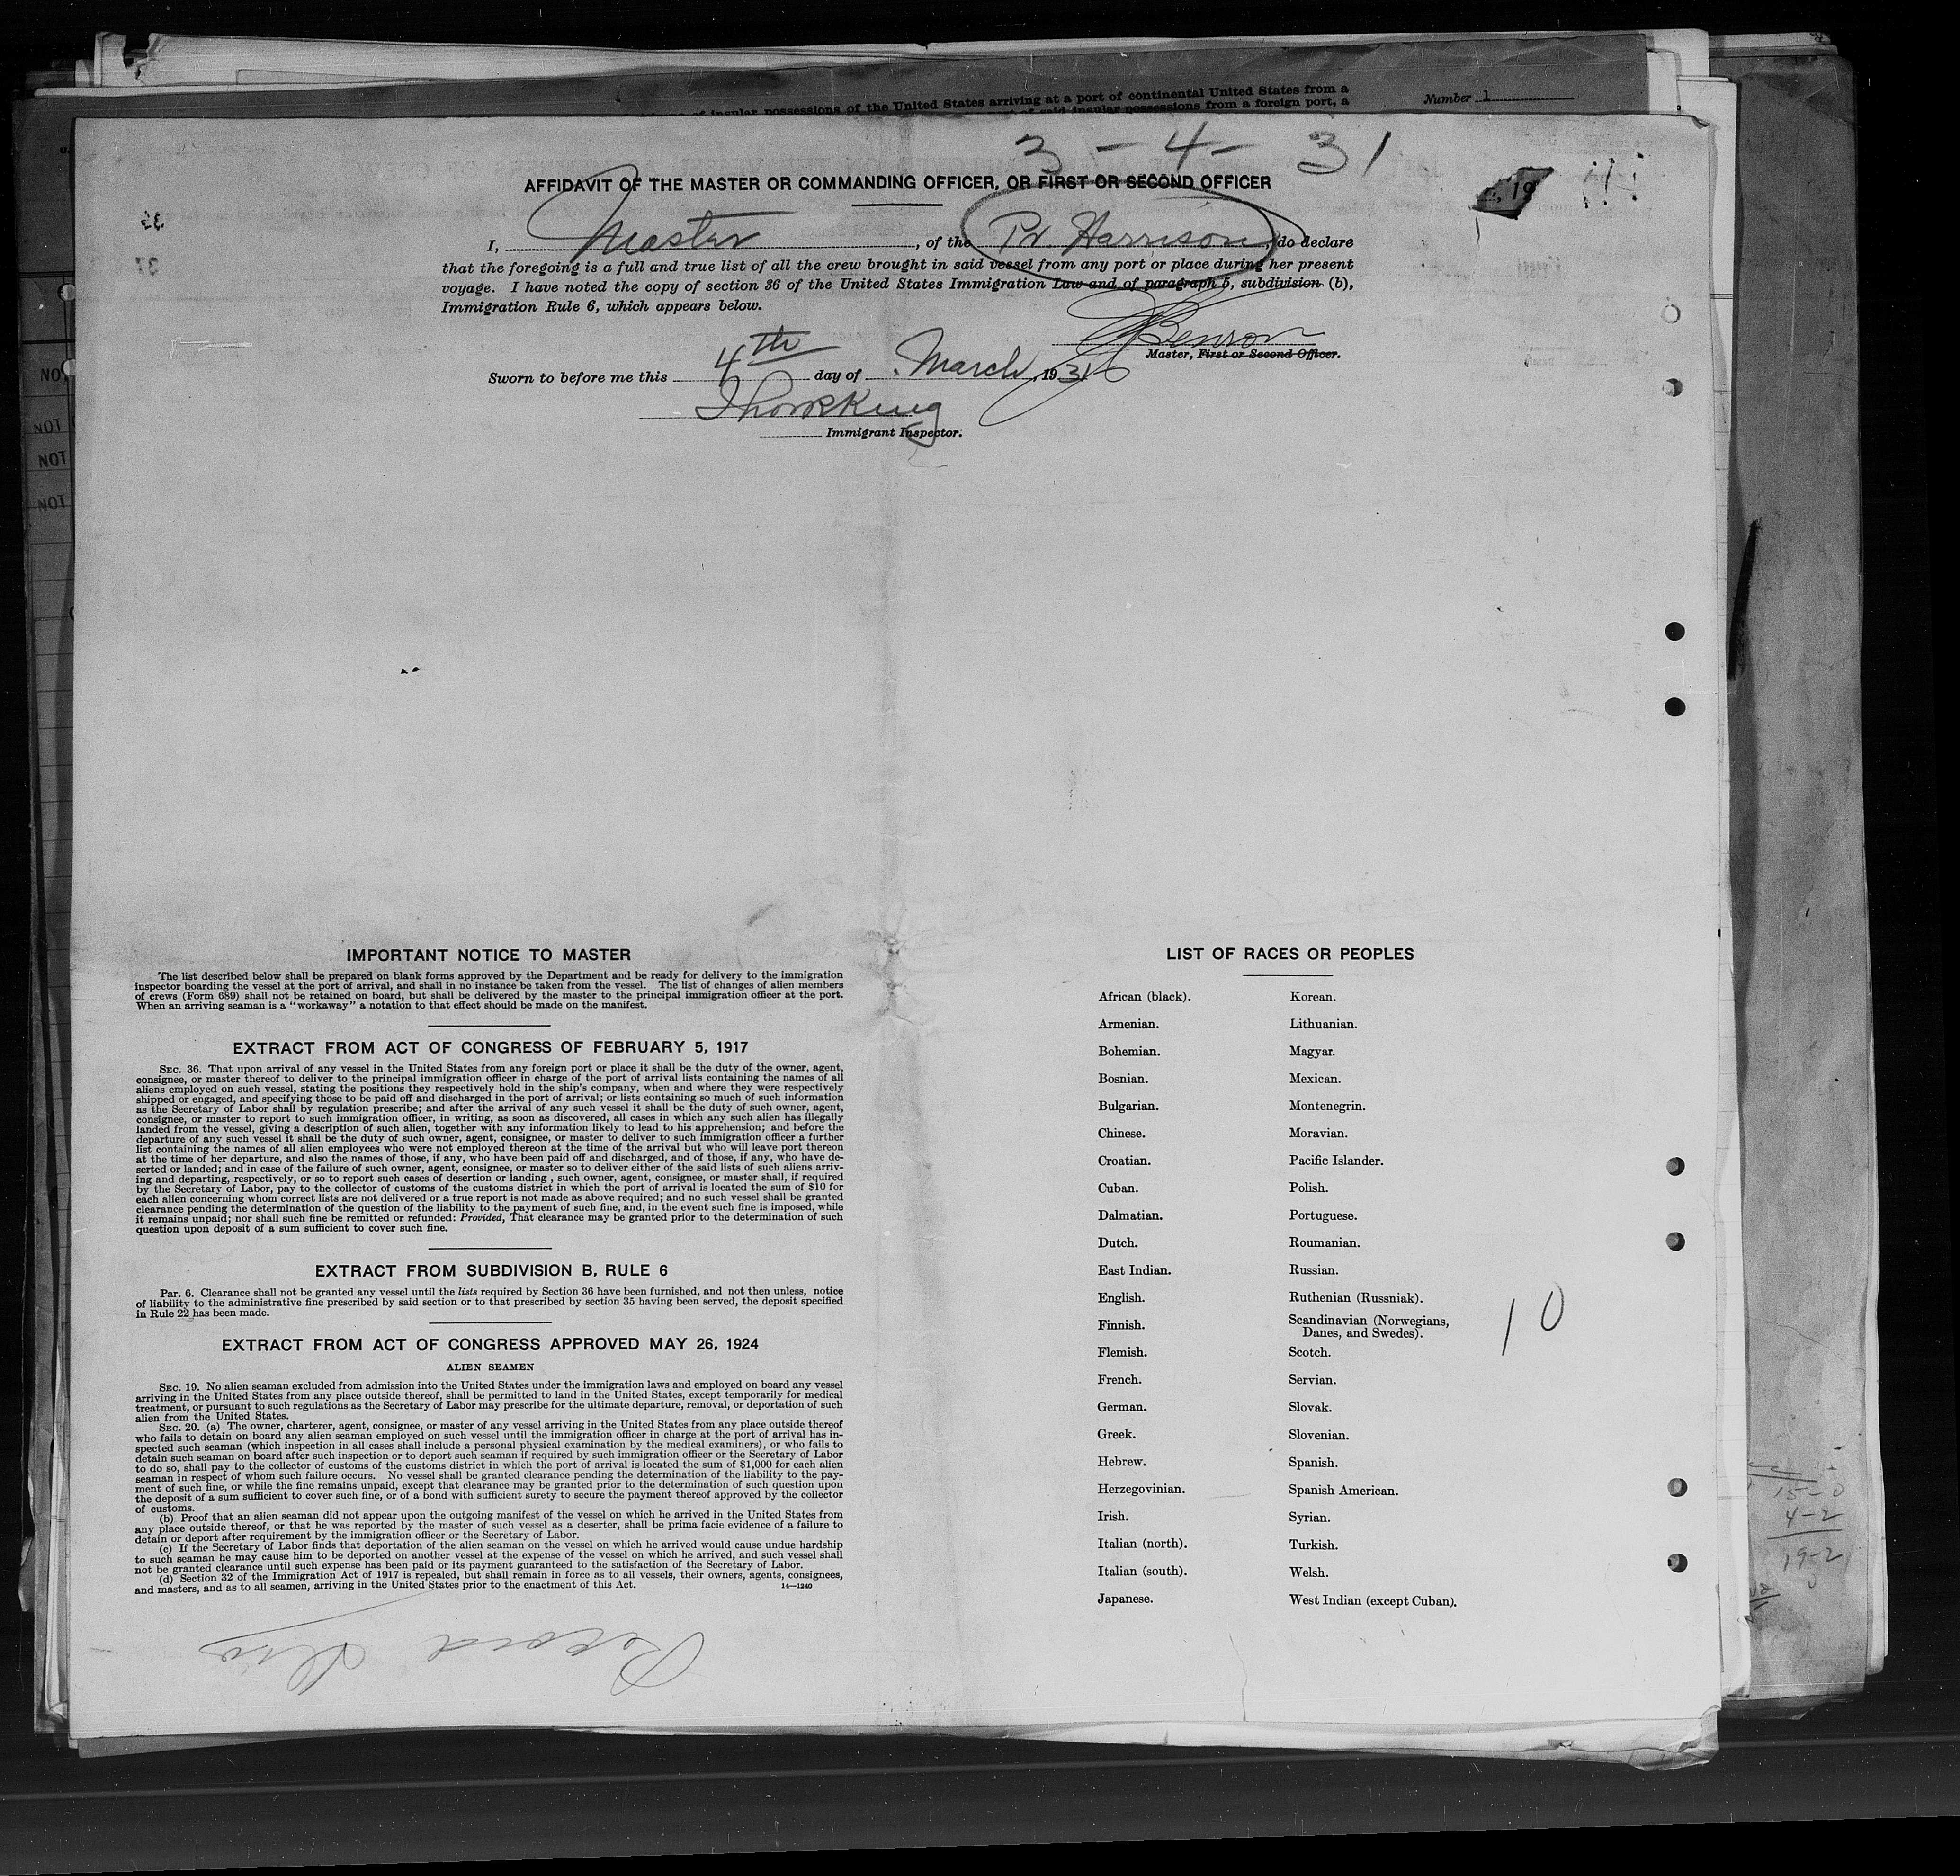 of insular possessions of the United States arriving at a port of continental United States from a
port of said insular possessions from a foreign port, a
Number 1
3-4-31
AFFIDAVIT OF THE MASTER OR COMMANDING OFFICER, OR FIRST OR SECOND OFFICER
I, Master, of the Pr. Harrison, do declare
that the foregoing is a full and true list of all the crew brought in said vessel from any port or place during her present
voyage. I have noted the copy of section 36 of the United States Immigration Law and of paragraph 5, subdivision (b),
Immigration Rule 6, which appears below.
Benson
Master, First or Second Officer.
Sworn to before me this 4th day of March, 1931
Immigrant Inspector.
IMPORTANT NOTICE TO MASTER
The list described below shall be prepared on blank forms approved by the Department and be ready for delivery to the immigration
inspector boarding the vessel at the port of arrival, and shall in no instance be taken from the vessel. The list of changes of alien members
of crews (Form 689) shall not be retained on board, but shall be delivered by the master to the principal immigration officer at the port.
When an arriving seaman is a "workaway" a notation to that effect should be made on the manifest.
EXTRACT FROM ACT OF CONGRESS OF FEBRUARY 5, 1917
SEC. 36. That upon arrival of any vessel in the United States from any foreign port or place it shall be the duty of the owner, agent,
consignee, or master thereof to deliver to the principal immigration officer in charge of the port of arrival lists containing the names of all
aliens employed on such vessel, stating the positions they respectively hold in the ship's company, when and where they were respectively
shipped or engaged, and specifying those to be paid off and discharged in the port of arrival; or lists containing so much of such information
as the Secretary of Labor shall by regulation prescribe; and after the arrival of any such vessel it shall be the duty of such owner, agent,
consignee, or master to report to such immigration officer, in writing, as soon as discovered, all cases in which any such alien has illegally
landed from the vessel, giving a description of such alien, together with any information likely to lead to his apprehension; and before the
departure of any such vessel it shall be the duty of such owner, agent, consignee, or master to deliver to such immigration officer a further
list containing the names of all alien employees who were not employed thereon at the time of the arrival but who will leave port thereon
at the time of her departure, and also the names of those, if any, who have been paid off and discharged, and of those, if any, who have de-
serted or landed; and in case of the failure of such owner, agent, consignee, or master so to deliver either of the said lists of such aliens arriv-
ing and departing, respectively, or so to report such cases of desertion or landing , such owner, agent, consignee, or master shall, if required
by the Secretary of Labor, pay to the collector of customs of the customs district in which the port of arrival is located the sum of $10 for
each alien concerning whom correct lists are not delivered or a true report is not made as above required; and no such vessel shall be granted
clearance pending the determination of the question of the liability to the payment of such fine, and, in the event such fine is imposed, while
it remains unpaid; nor shall such fine be remitted or refunded: Provided, That clearance may be granted prior to the determination of such
question upon deposit of a sum sufficient to cover such fine.
EXTRACT FROM SUBDIVISION B, RULE 6
Par. 6. Clearance shall not be granted any vessel until the lists required by Section 36 have been furnished, and not then unless, notice
of liability to the administrative fine prescribed by said section or to that prescribed by section 35 having been served, the deposit specified
in Rule 22 has been made.
EXTRACT FROM ACT OF CONGRESS APPROVED MAY 26, 1924
ALIEN SEAMEN
SEC. 19. No alien seaman excluded from admission into the United States under the immigration laws and employed on board any vessel
arriving in the United States from any place outside thereof, shall be permitted to land in the United States, except temporarily for medical
treatment, or pursuant to such regulations as the Secretary of Labor may prescribe for the ultimate departure, removal, or deportation of such
alien from the United States.
SEC. 20. (a) The owner, charterer, agent, consignee, or master of any vessel arriving in the United States from any place outside thereof
who fails to detain on board any alien seaman employed on such vessel until the immigration officer in charge at the port of arrival has in-
spected such seaman (which inspection in all cases shall include a personal physical examination by the medical examiners), or who fails to
detain such seaman on board after such inspection or to deport such seaman if required by such immigration officer or the Secretary of Labor
to do so, shall pay to the collector of customs of the customs district in which the port of arrival is located the sum of $1,000 for each alien
seaman in respect of whom such failure occurs. No vessel shall be granted clearance pending the determination of the liability to the pay-
ment of such fine, or while the fine remains unpaid, except that clearance may be granted prior to the determination of such question upon
the deposit of a sum sufficient to cover such fine, or of a bond with sufficient surety to secure the payment thereof approved by the collector
of customs.
(b) Proof that an alien seaman did not appear upon the outgoing manifest of the vessel on which he arrived in the United States from
any place outside thereof, or that he was reported by the master of such vessel as a deserter, shall be prima facie evidence of a failure to
detain or deport after requirement by the immigration officer or the Secretary of Labor.
(c) If the Secretary of Labor finds that deportation of the alien seaman on the vessel on which he arrived would cause undue hardship
to such seaman he may cause him to be deported on another vessel at the expense of the vessel on which he arrived, and such vessel shall
not be granted clearance until such expense has been paid or its payment guaranteed to the satisfaction of the Secretary of Labor.
(d) Section 32 of the Immigration Act of 1917 is repealed, but shall remain in force as to all vessels, their owners, agents, consignees,
and masters, and as to all seamen, arriving in the United States prior to the enactment of this Act. 14—1240
LIST OF RACES OR PEOPLES
African (black).
Armenian.
Bohemian.
Bosnian.
Bulgarian.
Chinese.
Croatian.
Cuban.
Dalmatian.
Dutch.
East Indian.
English.
Finnish.
Flemish.
French.
German.
Greek.
Hebrew.
Herzegovinian.
Irish.
Italian (north).
Italian (south).
Japanese.
Korean.
Lithuanian.
Magyar.
Mexican.
Montenegrin.
Moravian.
Pacific Islander.
Polish.
Portuguese.
Roumanian.
Russian.
Ruthenian (Russniak).
Scandinavian (Norwegians,
Danes, and Swedes).
Scotch.
Servian.
Slovak.
Slovenian.
Spanish.
Spanish American.
Syrian.
Turkish.
Welsh.
West Indian (except Cuban).
10
15-0
4-2
19-2